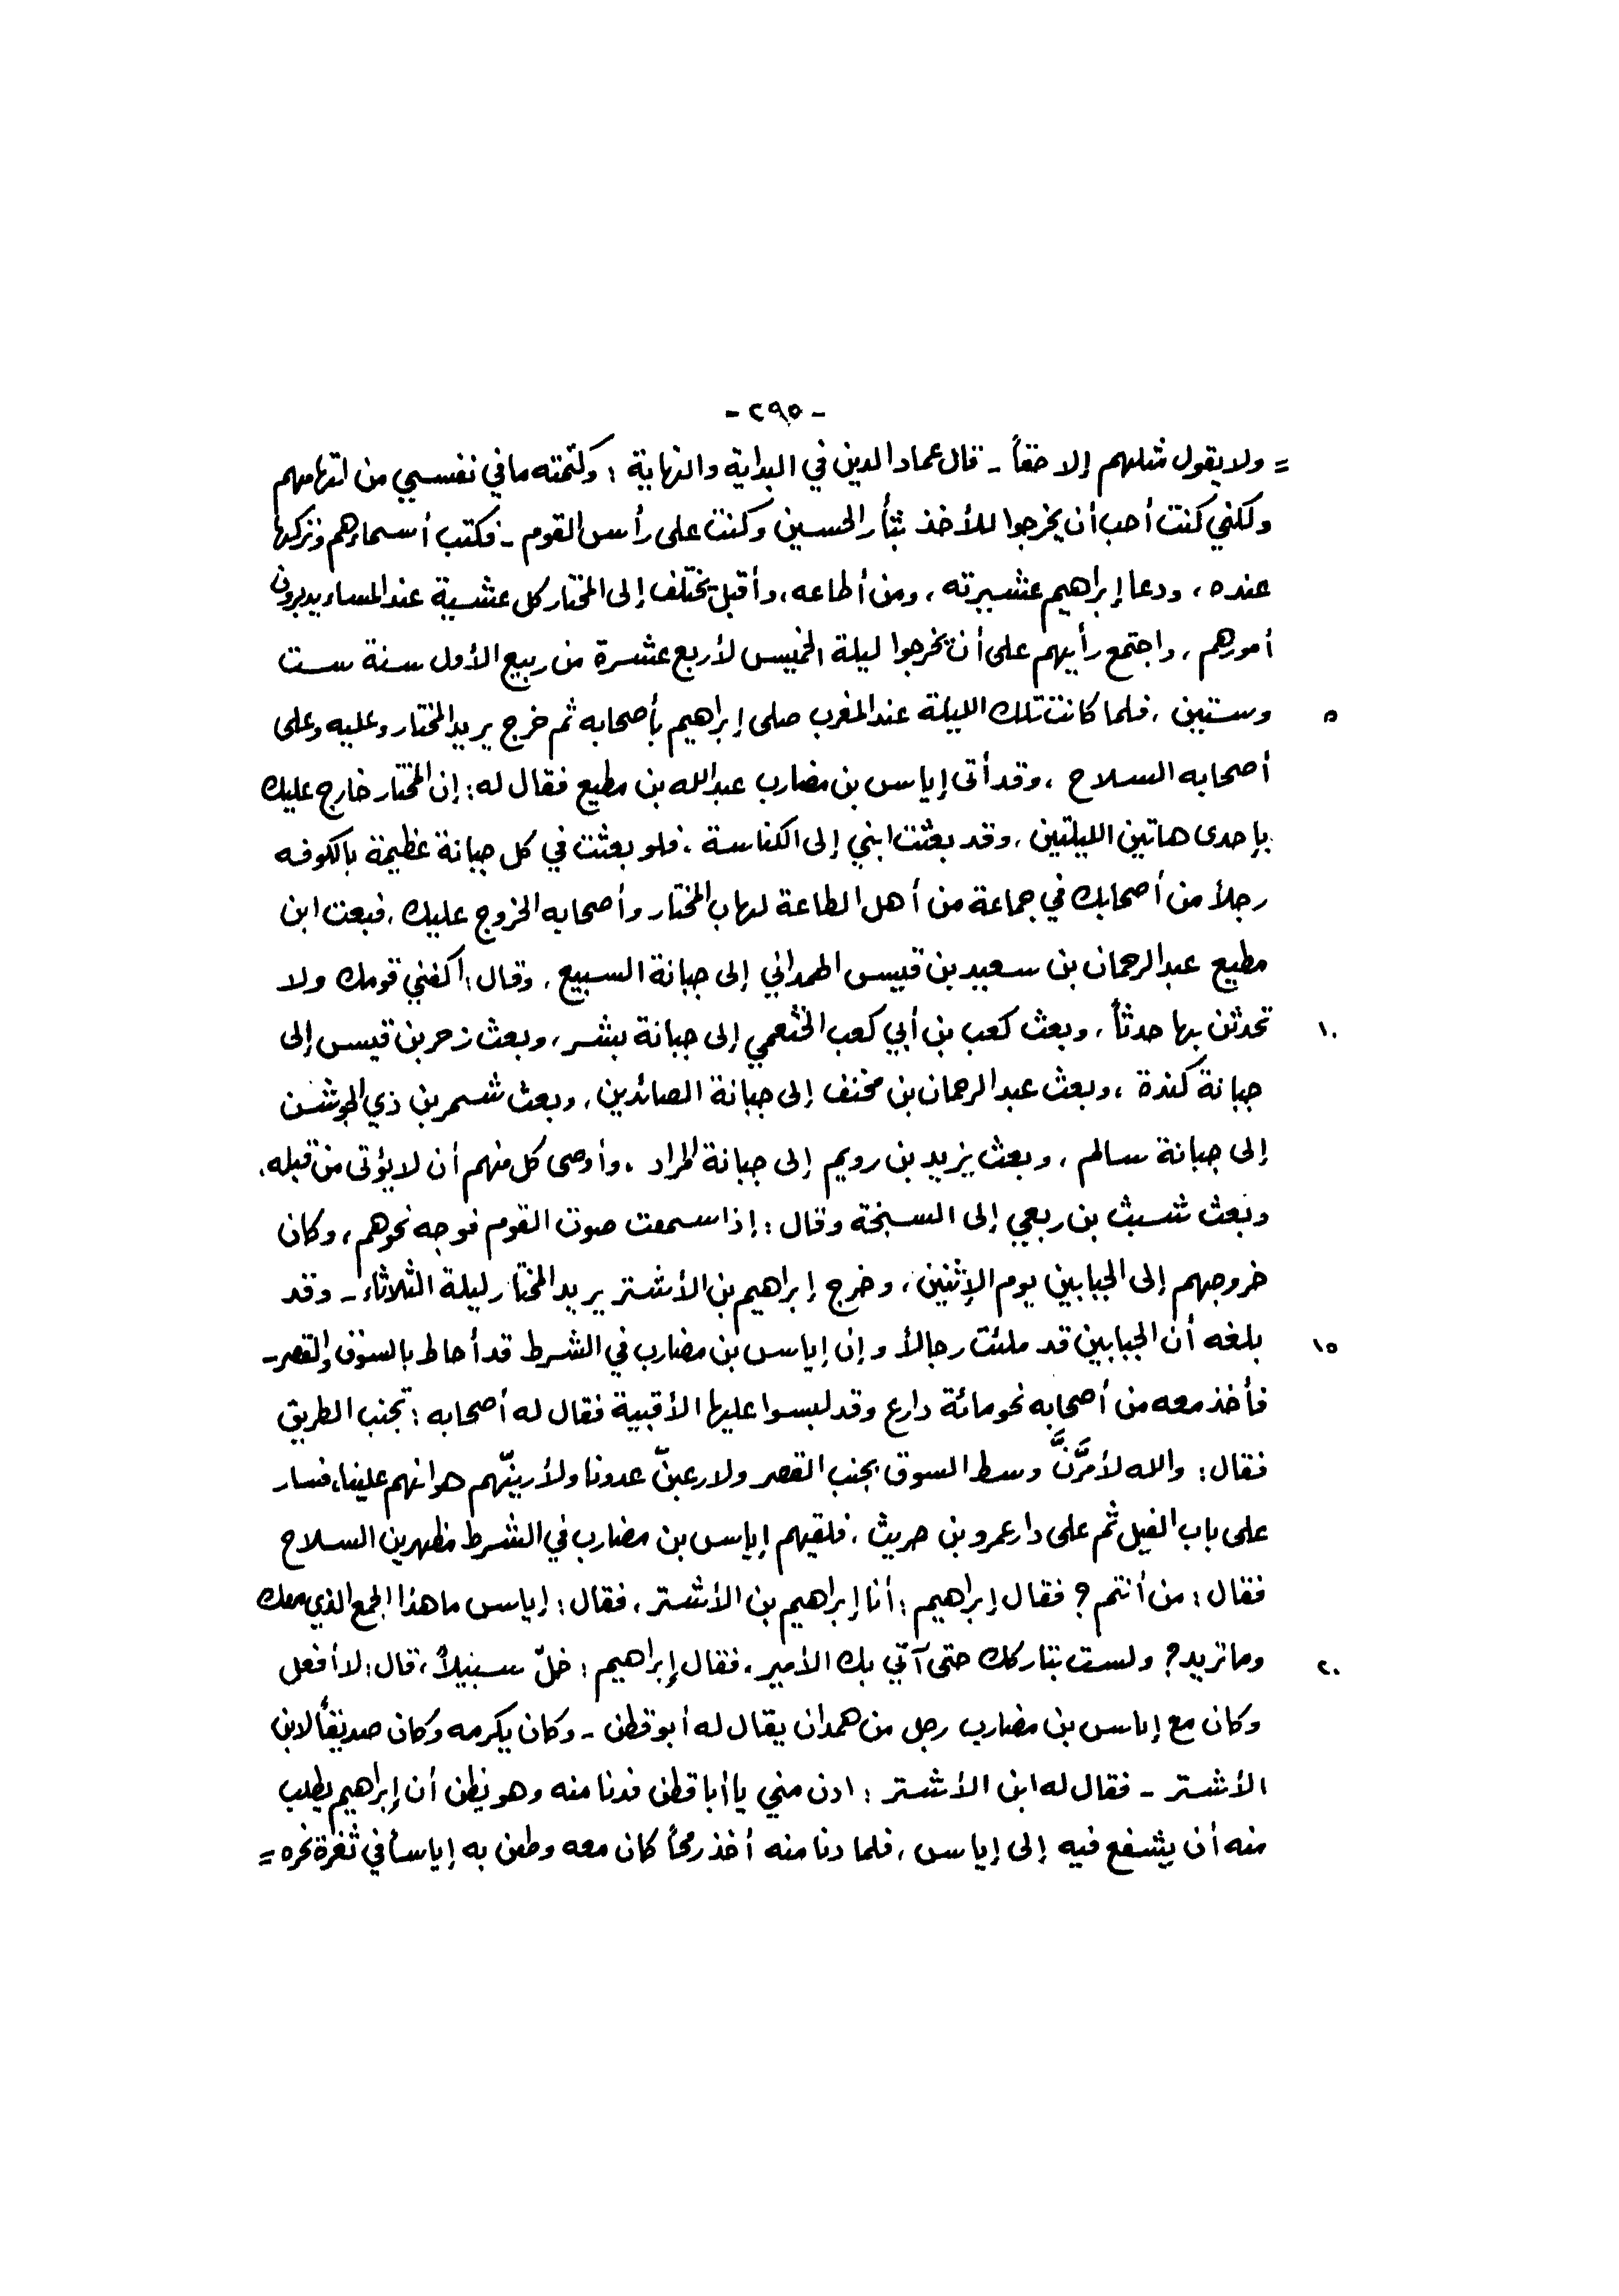 - ٢٩٥ -
= ولا يقول مثلهم إلا حقاً - قال عماد الدين في البداية والنهاية : وكتمته ما في نفسي من اتهامهم
ولكني كنت أحب أن يخرجوا للأخذ بثأر الحسين وكنت على رأس القوم - فكتب أسماءهم وتركها
عنده ، ودعا إبراهيم عشيرته ، ومن أطاعه ، وأقبل يختلف إلى المختار كل عشية عند المساء يدبرون
أمورهم ، واجتمع رأيهم على أن يخرجوا ليلة الخميس لأربع عشرة من ربيع الأول سنة ست
٥ وستين ، فلما كانت تلك الليلة عند المغرب صلى إبراهيم بأصحابه ثم خرج يريد المختار وعليه وعلى
أصحابه السلاح ، وقد أتى إياس بن مضارب عبدالله بن مطيع فقال له : إن المختار خارج عليك
بإحدى هاتين الليلتين ، وقد بعثت ابني إلى الكناسة ، فلو بعثت في كل جبانة عظيمة بالكوفه
رجلاً من أصحابك في جماعة من أهل الطاعة لهاب المختار وأصحابه الخروج عليك ، فبعث ابن
مطيع عبد الرحمان بن سعيد بن قيس الهمداني إلى جبانة السبيع ، وقال : اكفني قومك ولا
١٠ تحدثن بها حدثاً ، وبعث كعب بن أبي كعب الخثعمي إلى جبانة بشر ، وبعث زحر بن قيس إلى
جبانة كندة ، وبعث عبد الرحمان بن مخنف إلى جبانة الصائدين ، وبعث شمر بن ذي الجوشن
إلى جبانة سالم ، وبعث يزيد بن رويم إلى جبانة المراد . وأوصى كل منهم أن لا يؤتى من قبله .
وبعث شبث بن ربعي إلى السبخة وقال : إذا سمعت صوت القوم فوجه نحوهم ، وكان
خروجهم إلى الجبابين يوم الإثنين ، وخرج إبراهيم بن الأشتر يريد المختار ليلة الثلاثاء - وقد
١٥ بلغه أن الجبابين قد ملئت رجالاً وإن إياس بن مضارب في الشرط قد أحاط بالسوق والقصر -
فأخذ معه من أصحابه نحو مائة دارع وقد لبسوا عليها الأقبية فقال له أصحابه : تجنب الطريق
فقال : والله لأمرَّنَّ وسط السوق بجنب القصر ولارعبنّ عدونا ولأرينّهم هوانهم علينا ، فسار
على باب الفيل ثم على دار عمرو بن حريث ، فلقيهم إياس بن مضارب في الشرط مظهرين السلاح
فقال : من أنتم ؟ فقال إبراهيم : أنا إبراهيم بن الأشتر ، فقال : إياس ما هذا الجمع الذي معك
٢٠ وما تريد ؟ ولست بتاركك حتى آتي بك الأمير . فقال إبراهيم : خلّ سبيلاً ، قال : لا أفعل
وكان مع إياس بن مضارب رجل من همدان يقال له أبو قطن - وكان يكرمه وكان صديقاً لابن
الأشتر - فقال له ابن الأشتر : ادن مني يا أبا قطن فدنا منه وهو يظن أن إبراهيم يطلب
منه أن يشفع فيه إلى إياس ، فلما دنا منه أخذ رمحاً كان معه وطعن به إياساً في ثغرة نحره =